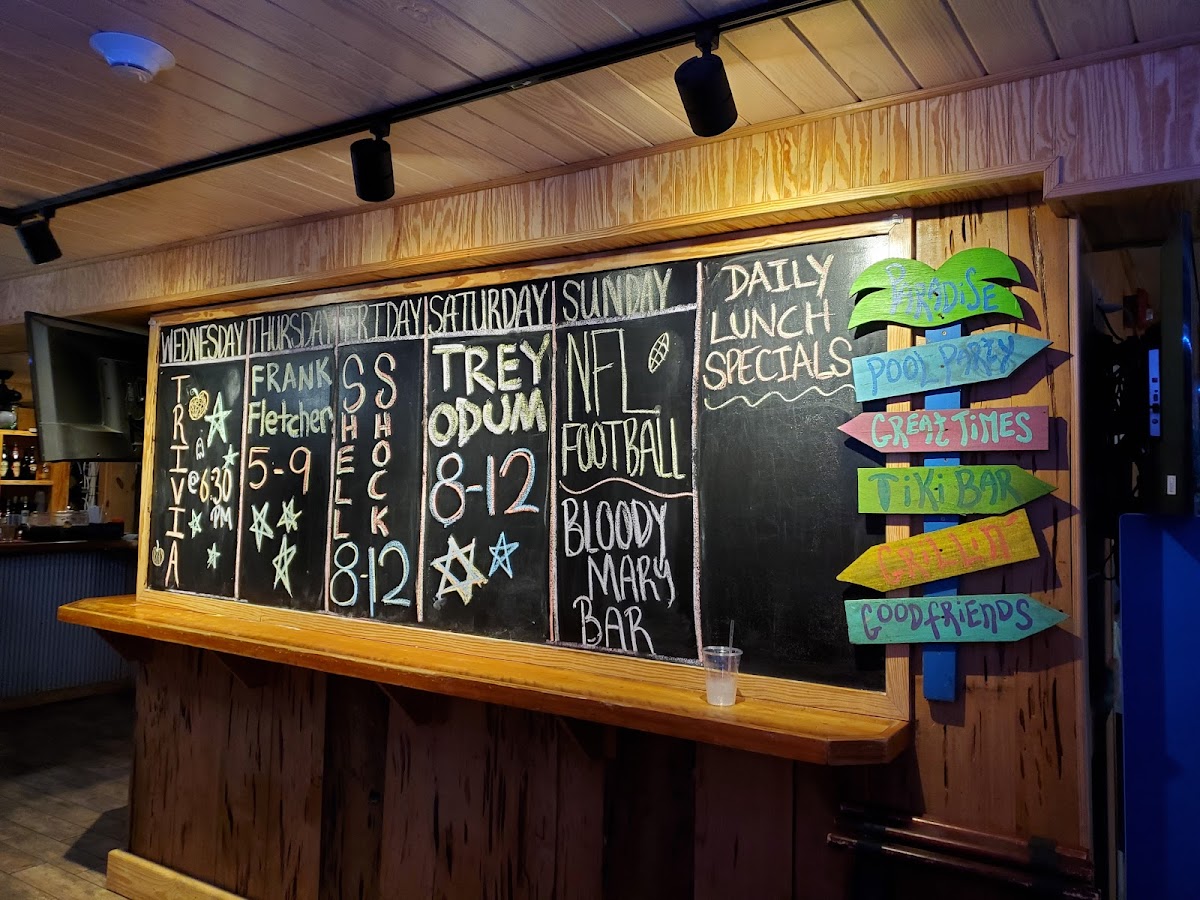 WEDNESDAY
TRIVIA
@ 6:30
PM
THURSDAY
FRANK
Fletcher
5-9
FRIDAY
SHELL
SHOCK
8-12
SATURDAY
TREY
ODUM
8-12
SUNDAY
NFL
FOOTBALL
BLOODY
MARY
BAR
DAILY
LUNCH
SPECIALS
PARADISE
POOL PARTY
GREAT TIMES
TIKI BAR
GOOD FRIENDS